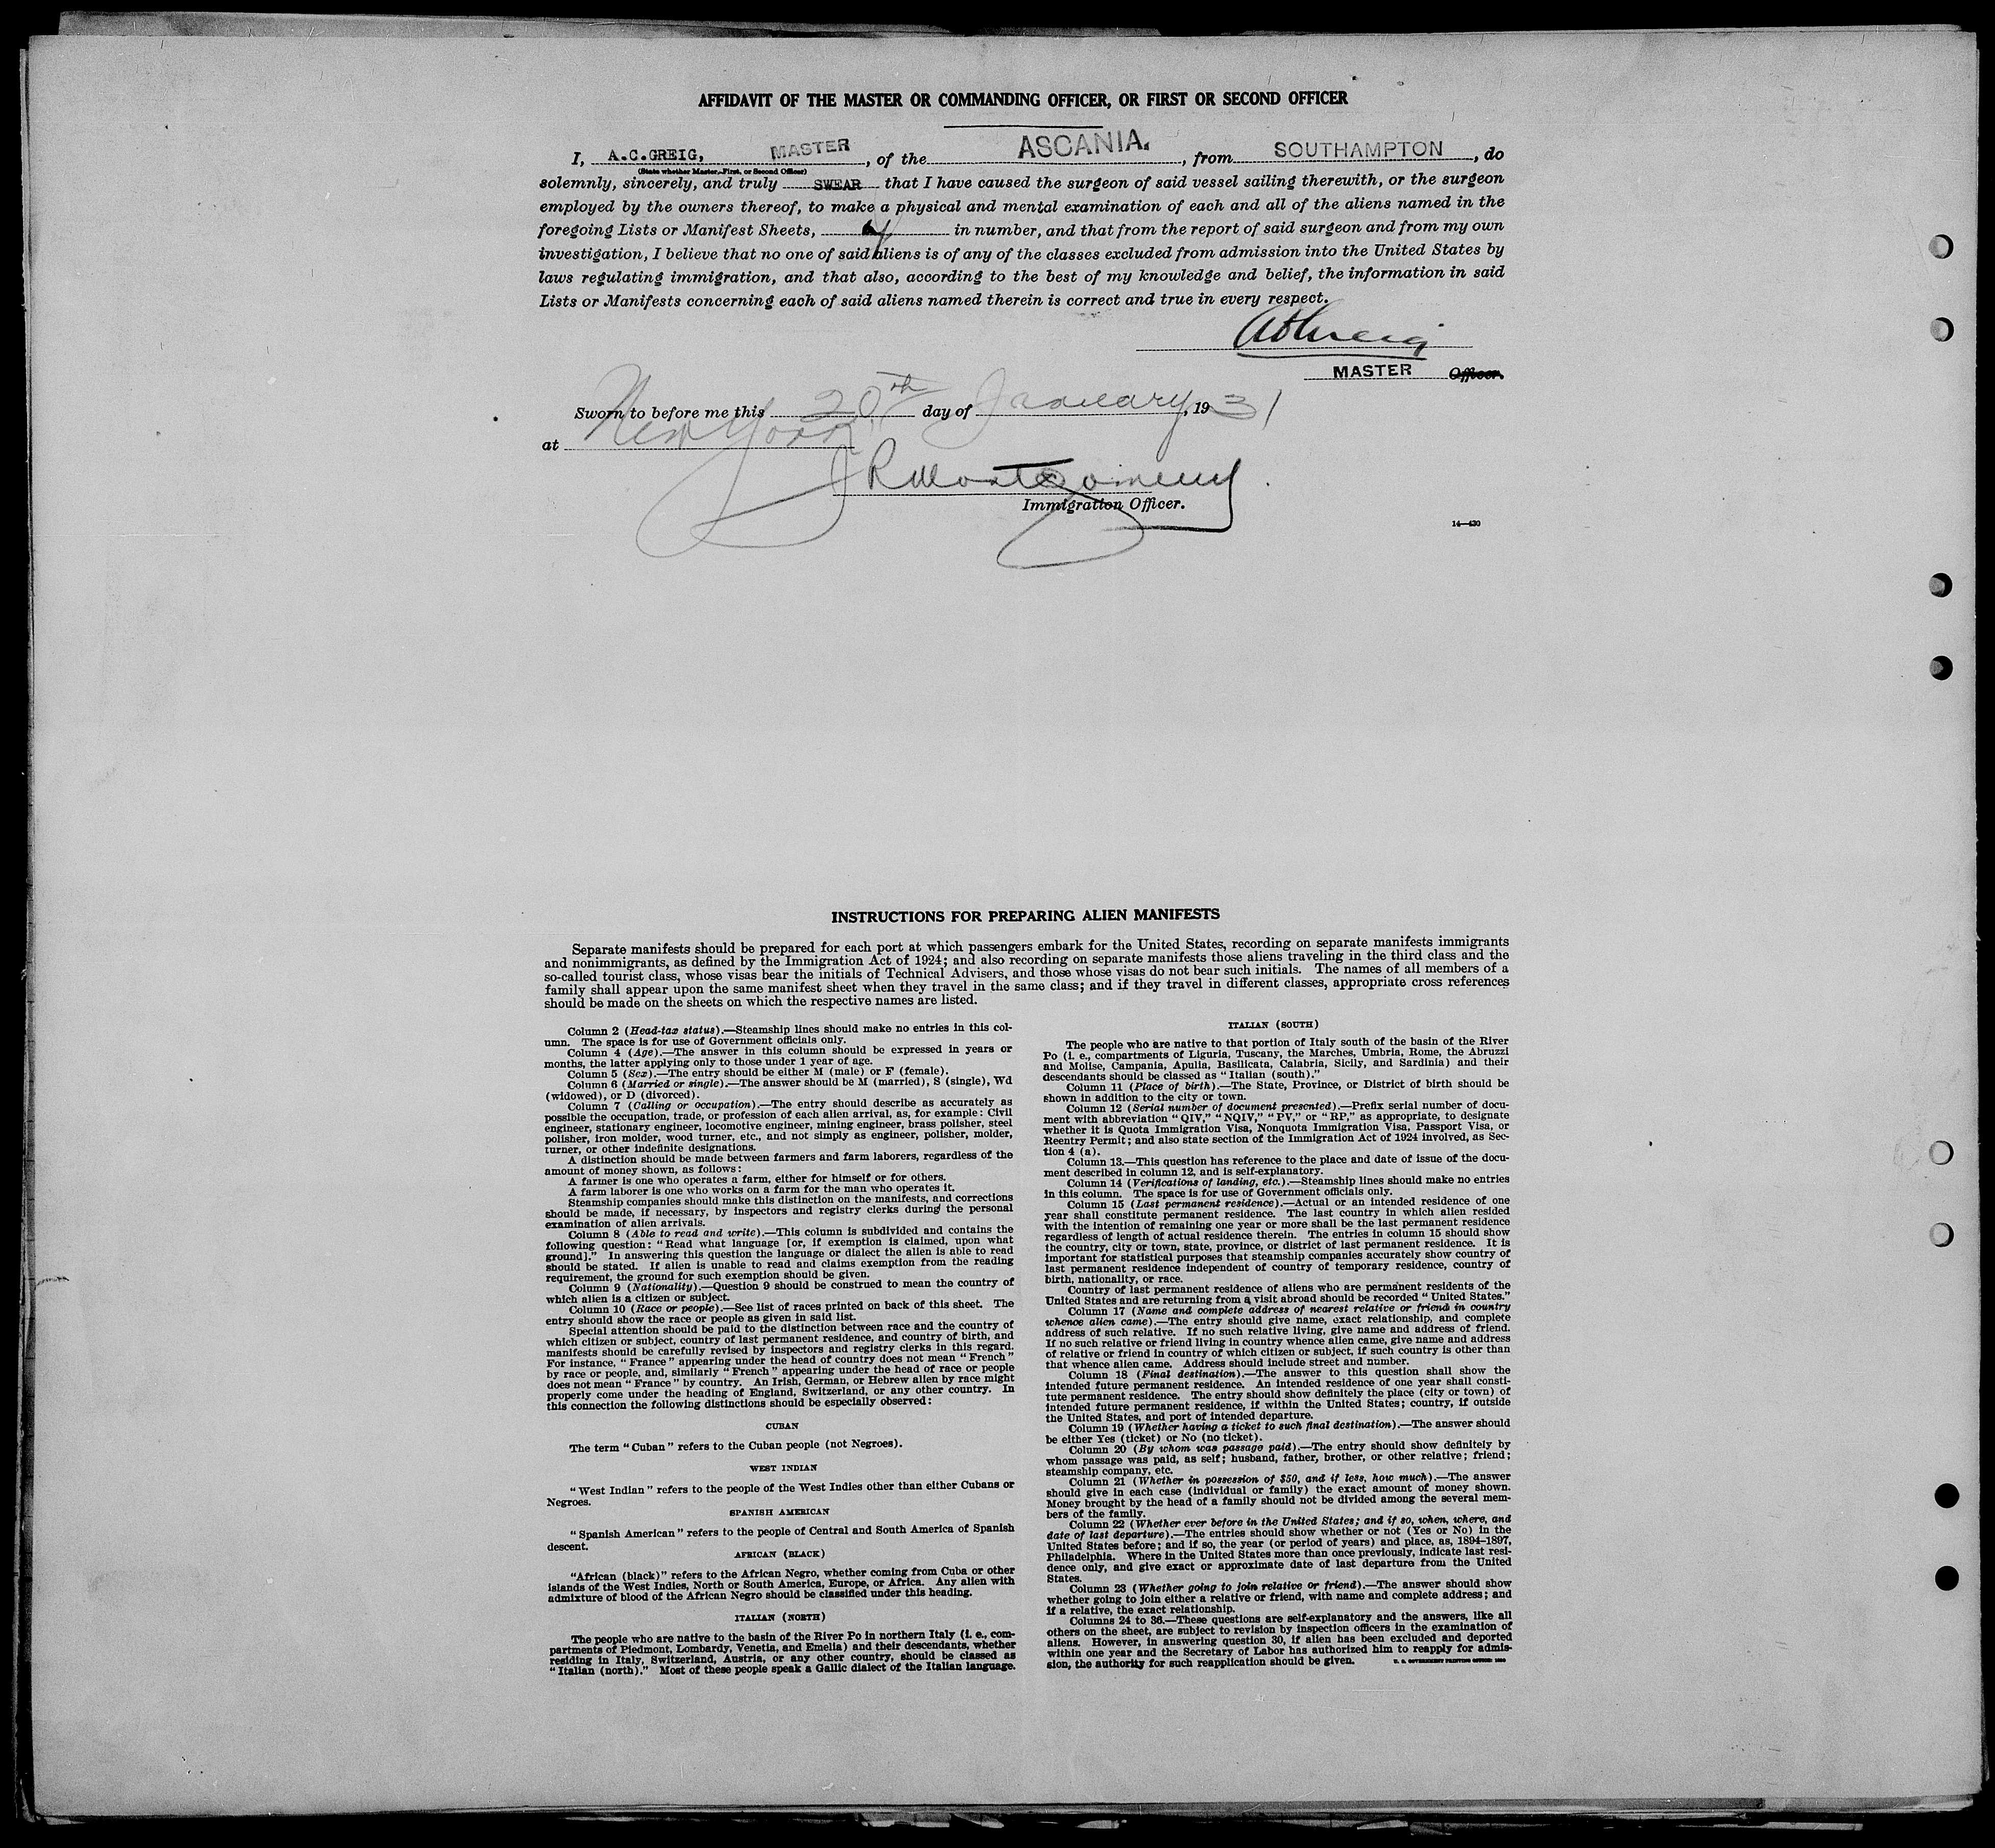 AFFIDAVIT OF THE MASTER OR COMMANDING OFFICER, OR FIRST OR SECOND OFFICER
I, A.C.GREIG, MASTER, of the ASCANIA., from SOUTHAMPTON, do
(State whether Master, First, or Second Officer)
solemnly, sincerely, and truly SWEAR that I have caused the surgeon of said vessel sailing therewith, or the surgeon
employed by the owners thereof, to make a physical and mental examination of each and all of the aliens named in the
foregoing Lists or Manifest Sheets, in number, and that from the report of said surgeon and from my own
investigation, I believe that no one of said aliens is of any of the classes excluded from admission into the United States by
laws regulating immigration, and that also, according to the best of my knowledge and belief, the information in said
Lists or Manifests concerning each of said aliens named therein is correct and true in every respect.
ACGreig
MASTER Officer.
Sworn to before me this 20th day of January, 1931
at New York
JRMontgomery
Immigration Officer.
14—430
INSTRUCTIONS FOR PREPARING ALIEN MANIFESTS
Separate manifests should be prepared for each port at which passengers embark for the United States, recording on separate manifests immigrants
and nonimmigrants, as defined by the Immigration Act of 1924; and also recording on separate manifests those aliens traveling in the third class and the
so-called tourist class, whose visas bear the initials of Technical Advisers, and those whose visas do not bear such initials. The names of all members of a
family shall appear upon the same manifest sheet when they travel in the same class; and if they travel in different classes, appropriate cross references
should be made on the sheets on which the respective names are listed.
Column 2 (Head-tax status).—Steamship lines should make no entries in this col-
umn. The space is for use of Government officials only.
Column 4 (Age).—The answer in this column should be expressed in years or
months, the latter applying only to those under 1 year of age.
Column 5 (Sex).—The entry should be either M (male) or F (female).
Column 6 (Married or single).—The answer should be M (married), S (single), Wd
(widowed), or D (divorced).
Column 7 (Calling or occupation).—The entry should describe as accurately as
possible the occupation, trade, or profession of each alien arrival, as, for example: Civil
engineer, stationary engineer, locomotive engineer, mining engineer, brass polisher, steel
polisher, iron molder, wood turner, etc., and not simply as engineer, polisher, molder,
turner, or other indefinite designations.
A distinction should be made between farmers and farm laborers, regardless of the
amount of money shown, as follows:
A farmer is one who operates a farm, either for himself or for others.
A farm laborer is one who works on a farm for the man who operates it.
Steamship companies should make this distinction on the manifests, and corrections
should be made, if necessary, by inspectors and registry clerks during the personal
examination of alien arrivals.
Column 8 (Able to read and write).—This column is subdivided and contains the
following question: "Read what language [or, if exemption is claimed, upon what
ground]." In answering this question the language or dialect the alien is able to read
should be stated. If alien is unable to read and claims exemption from the reading
requirement, the ground for such exemption should be given.
Column 9 (Nationality).—Question 9 should be construed to mean the country of
which alien is a citizen or subject.
Column 10 (Race or people).—See list of races printed on back of this sheet. The
entry should show the race or people as given in said list.
Special attention should be paid to the distinction between race and the country of
which citizen or subject, country of last permanent residence, and country of birth, and
manifests should be carefully revised by inspectors and registry clerks in this regard.
For instance, "France" appearing under the head of country does not mean "French"
by race or people, and, similarly "French" appearing under the head of race or people
does not mean "France" by country. An Irish, German, or Hebrew alien by race might
properly come under the heading of England, Switzerland, or any other country. In
this connection the following distinctions should be especially observed:
CUBAN
The term "Cuban" refers to the Cuban people (not Negroes).
WEST INDIAN
"West Indian" refers to the people of the West Indies other than either Cubans or
Negroes.
SPANISH AMERICAN
"Spanish American" refers to the people of Central and South America of Spanish
descent.
AFRICAN (BLACK)
"African (black)" refers to the African Negro, whether coming from Cuba or other
islands of the West Indies, North or South America, Europe, or Africa. Any alien with
admixture of blood of the African Negro should be classified under this heading.
ITALIAN (NORTH)
The people who are native to the basin of the River Po in northern Italy (i. e., com-
partments of Piedmont, Lombardy, Venetia, and Emelia) and their descendants, whether
residing in Italy, Switzerland, Austria, or any other country, should be classed as
"Italian (north)." Most of these people speak a Gallic dialect of the Italian language.
ITALIAN (SOUTH)
The people who are native to that portion of Italy south of the basin of the River
Po (i. e., compartments of Liguria, Tuscany, the Marches, Umbria, Rome, the Abruzzi
and Molise, Campania, Apulia, Basilicata, Calabria, Sicily, and Sardinia) and their
descendants should be classed as "Italian (south)."
Column 11 (Place of birth).—The State, Province, or District of birth should be
shown in addition to the city or town.
Column 12 (Serial number of document presented).—Prefix serial number of docu-
ment with abbreviation "QIV," "NQIV," "PV," or "RP," as appropriate, to designate
whether it is Quota Immigration Visa, Nonquota Immigration Visa, Passport Visa, or
Reentry Permit; and also state section of the Immigration Act of 1924 involved, as Sec-
tion 4 (a).
Column 13.—This question has reference to the place and date of issue of the docu-
ment described in column 12, and is self-explanatory.
Column 14 (Verifications of landing, etc.).—Steamship lines should make no entries
in this column. The space is for use of Government officials only.
Column 15 (Last permanent residence).—Actual or an intended residence of one
year shall constitute permanent residence. The last country in which alien resided
with the intention of remaining one year or more shall be the last permanent residence
regardless of length of actual residence therein. The entries in column 15 should show
the country, city or town, state, province, or district of last permanent residence. It is
important for statistical purposes that steamship companies accurately show country of
last permanent residence independent of country of temporary residence, country of
birth, nationality, or race.
Country of last permanent residence of aliens who are permanent residents of the
United States and are returning from a visit abroad should be recorded "United States."
Column 17 (Name and complete address of nearest relative or friend in country
whence alien came).—The entry should give name, exact relationship, and complete
address of such relative. If no such relative living, give name and address of friend.
If no such relative or friend living in country whence alien came, give name and address
of relative or friend in country of which citizen or subject, if such country is other than
that whence alien came. Address should include street and number.
Column 18 (Final destination).—The answer to this question shall show the
intended future permanent residence. An intended residence of one year shall consti-
tute permanent residence. The entry should show definitely the place (city or town) of
intended future permanent residence, if within the United States; country, if outside
the United States, and port of intended departure.
Column 19 (Whether having a ticket to such final destination).—The answer should
be either Yes (ticket) or No (no ticket).
Column 20 (By whom was passage paid).—The entry should show definitely by
whom passage was paid, as self; husband, father, brother, or other relative; friend;
steamship company, etc.
Column 21 (Whether in possession of $50, and if less, how much).—The answer
should give in each case (individual or family) the exact amount of money shown.
Money brought by the head of a family should not be divided among the several mem-
bers of the family.
Column 22 (Whether ever before in the United States; and if so, when, where, and
date of last departure).—The entries should show whether or not (Yes or No) in the
United States before; and if so, the year (or period of years) and place, as, 1894–1897,
Philadelphia. Where in the United States more than once previously, indicate last resi-
dence only, and give exact or approximate date of last departure from the United
States.
Column 23 (Whether going to join relative or friend).—The answer should show
whether going to join either a relative or friend, with name and complete address; and
if a relative, the exact relationship.
Columns 24 to 36.—These questions are self-explanatory and the answers, like all
others on the sheet, are subject to revision by inspection officers in the examination of
aliens. However, in answering question 30, if alien has been excluded and deported
within one year and the Secretary of Labor has authorized him to reapply for admis-
sion, the authority for such reapplication should be given.
U. S. GOVERNMENT PRINTING OFFICE